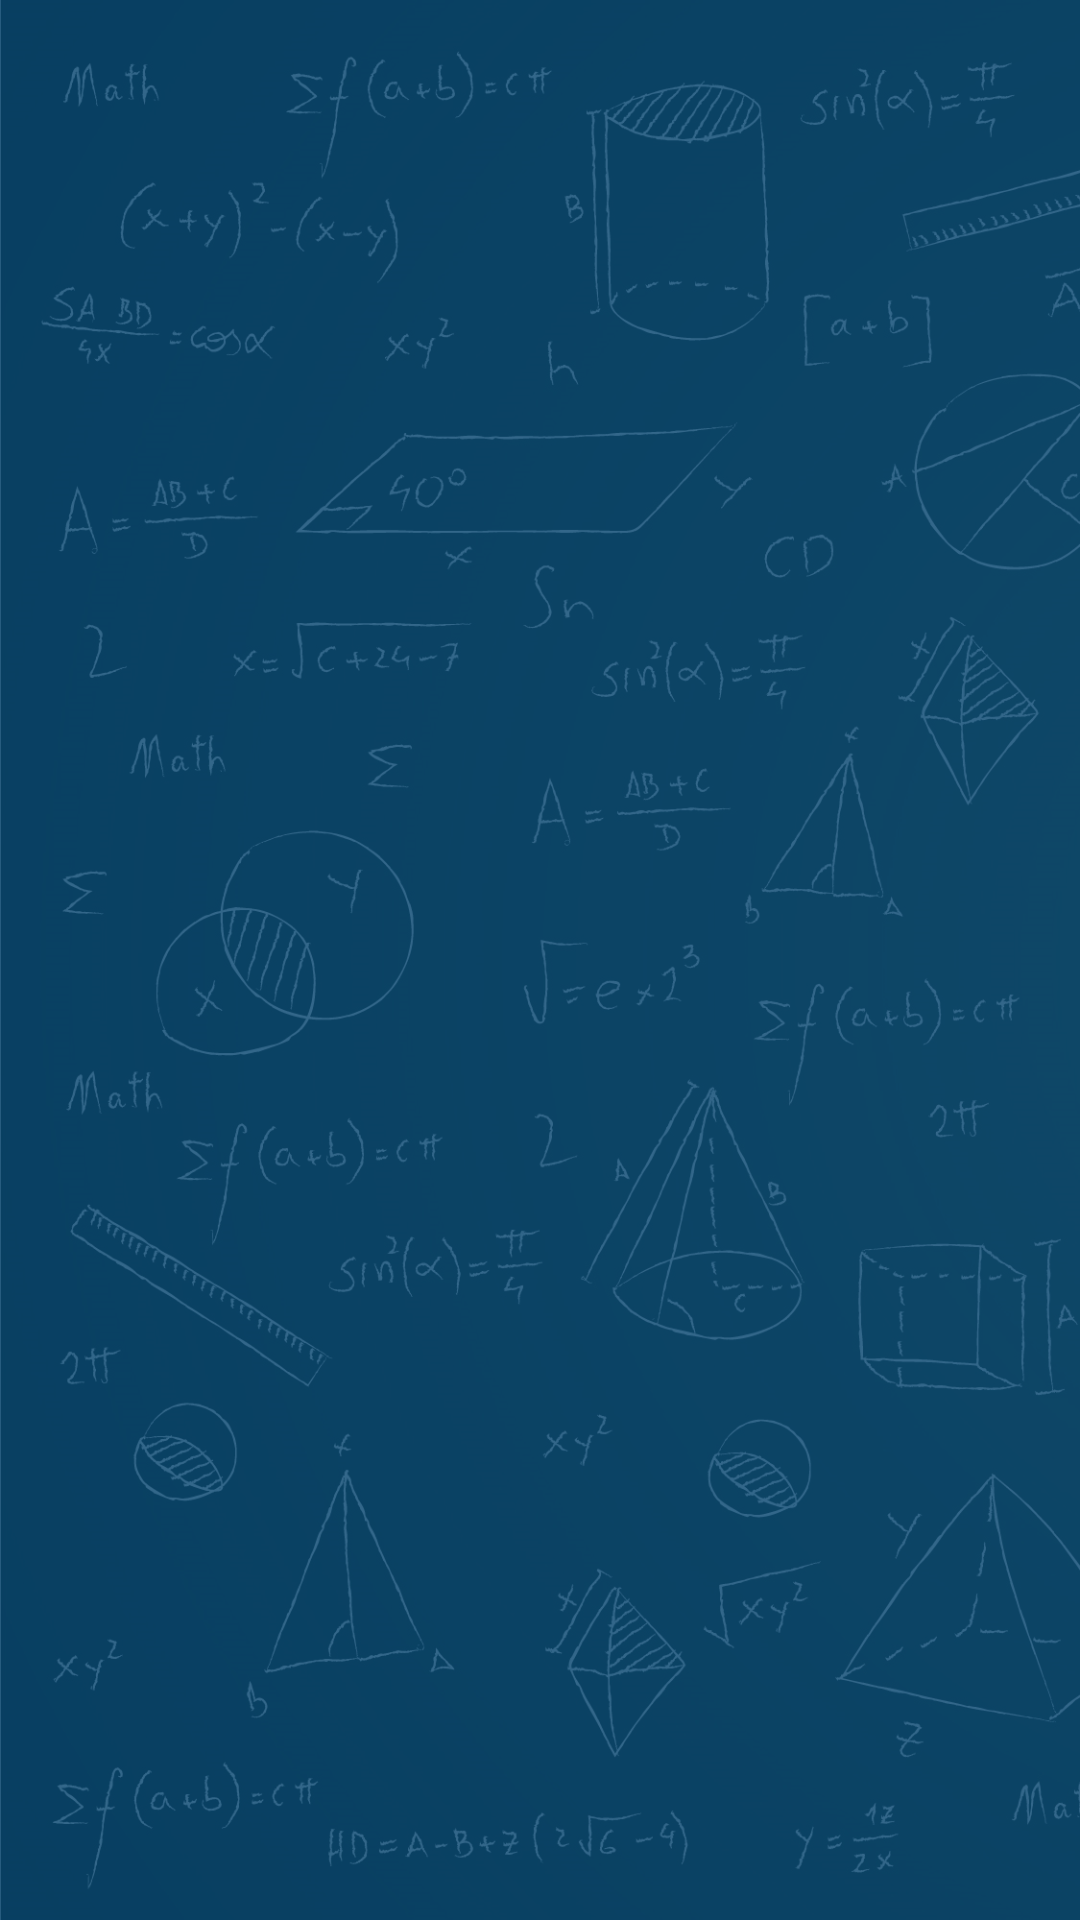 Math
Σf(a+b)=cπ
sin²(α)=π/4
(x+y)²-(x-y)
B
SA BD/4x =cosα
xy²
h
[a+b]
A
A=AB+C/D
40°
y
x
A
C
CD
Sn
2
x=√C+24-7
sin²(α)=π/4
x
Math
Σ
A=AB+C/D
x
B
A
Σ
Y
X
√=e×2³
Σf(a+b)=cπ
Math
Σf(a+b)=cπ
2
A
B
C
2π
sin²(α)=π/4
A
2π
x
B
A
xy²
Y
Z
x
√xy²
xy²
Σf(a+b)=cπ
HD=A-B+Z(2√6-4)
y=1z/2x
Mat